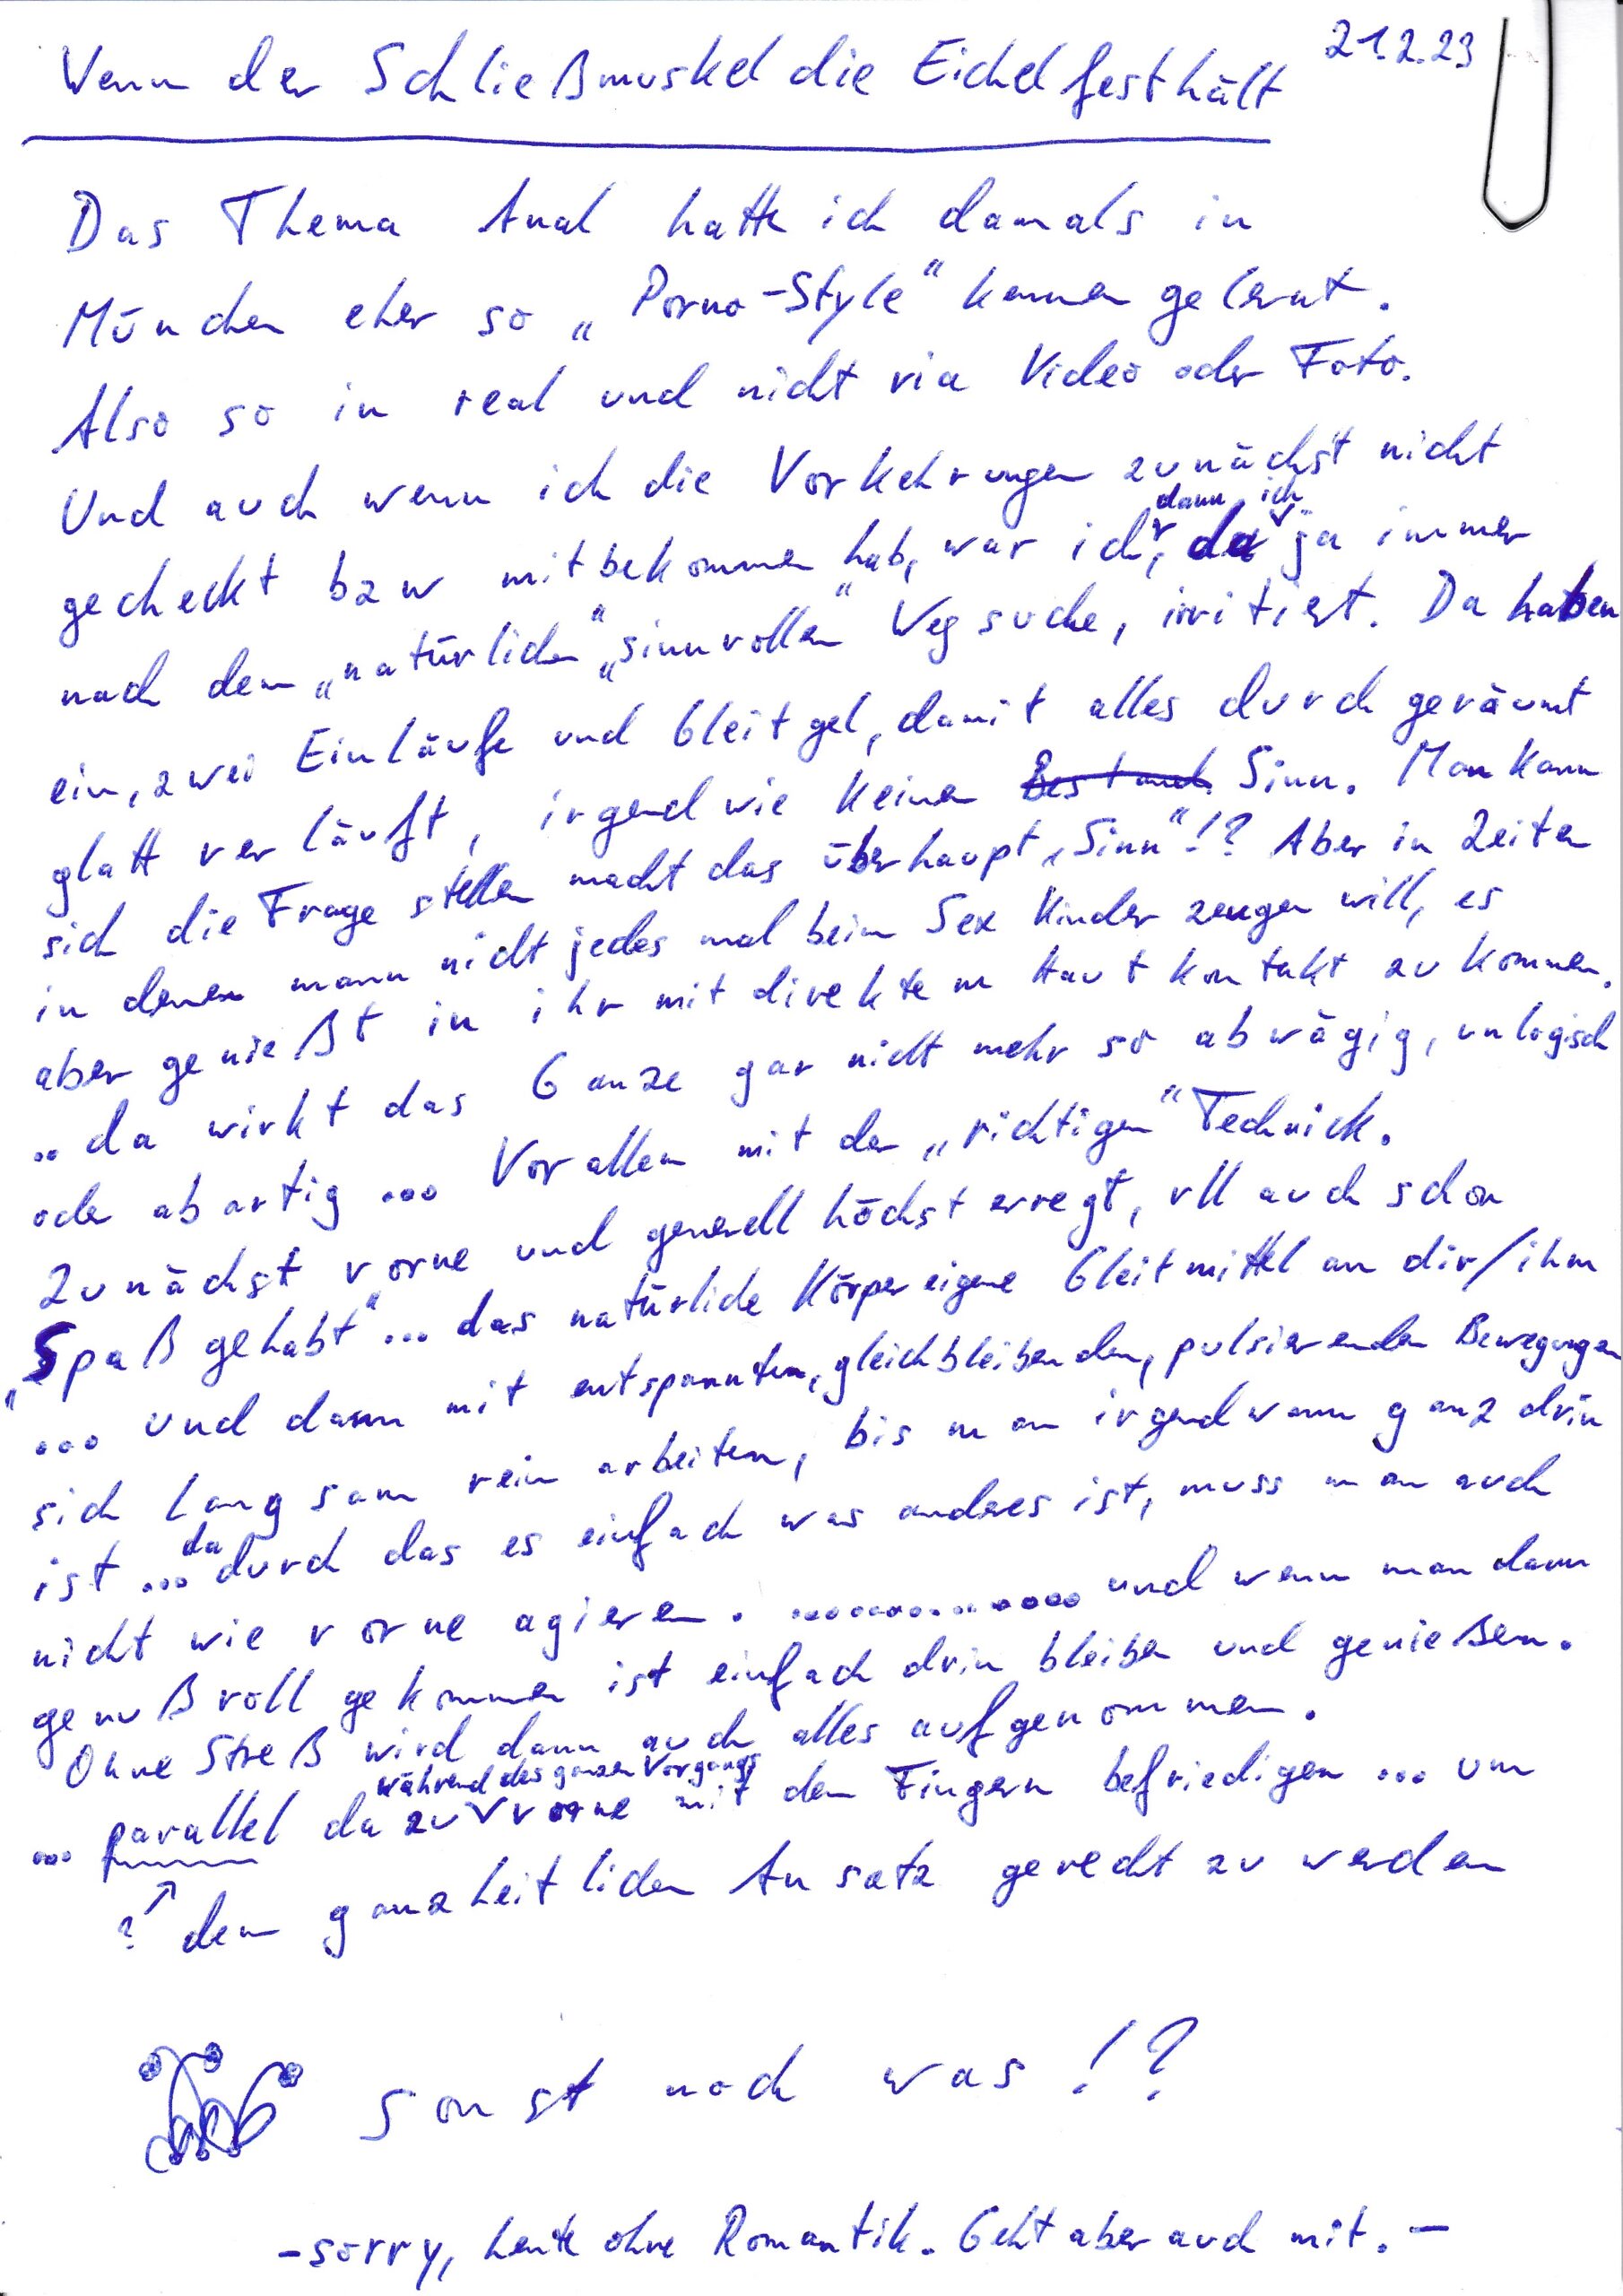 21.2.23
Wenn der Schließmuskel die Eichel festhält
Das Thema Anal hatte ich damals in
München eher so „Porno-Style" kennen gelernt.
Also so in real und nicht via Video oder Foto.
Und auch wenn ich die Vorkehrungen zunächst nicht
gecheckt bzw mitbekommen hab, war ich dann, da ich ja immer
nach dem „natürlichen" „sinnvollen" Weg suche, irritiert. Da haben
ein, zwei Einläufe und Gleitgel, damit alles durch geräumt
glatt verläuft, irgendwie keinen Sinn. Man kann
sich die Frage stellen macht das überhaupt „Sinn"!? Aber in Zeiten
in denen mann nicht jedes mal beim Sex Kinder zeugen will, es
aber genießt in ihr mit direktem Hautkontakt zu kommen.
.. da wirkt das Ganze gar nicht mehr so abwägig, unlogisch
oder abartig ... Vor allem mit der „richtigen" Technick.
Zunächst vorne und generell höchst erregt, vll auch schon
„Spaß gehabt" ... das natürliche Körpereigene Gleitmittel an dir/ihm
... und dann mit entspannten, gleichbleibenden, pulsierenden Bewegungen
sich langsam rein arbeiten, bis man irgendwann ganz drin
ist ... dadurch das es einfach was anderes ist, muss man auch
nicht wie vorne agieren. ................ und wenn man dann
genußvoll gekommen ist einfach drin bleiben und genießen.
Ohne Streß wird dann auch alles aufgenommen.
... parallel dazu während des ganzen Vorgangs vorne mit den Fingern befriedigen ... um
? dem ganzheitlichen Ansatz gerecht zu werden
Sonst noch was!?
- sorry, heute ohne Romantik. Geht aber auch mit. -